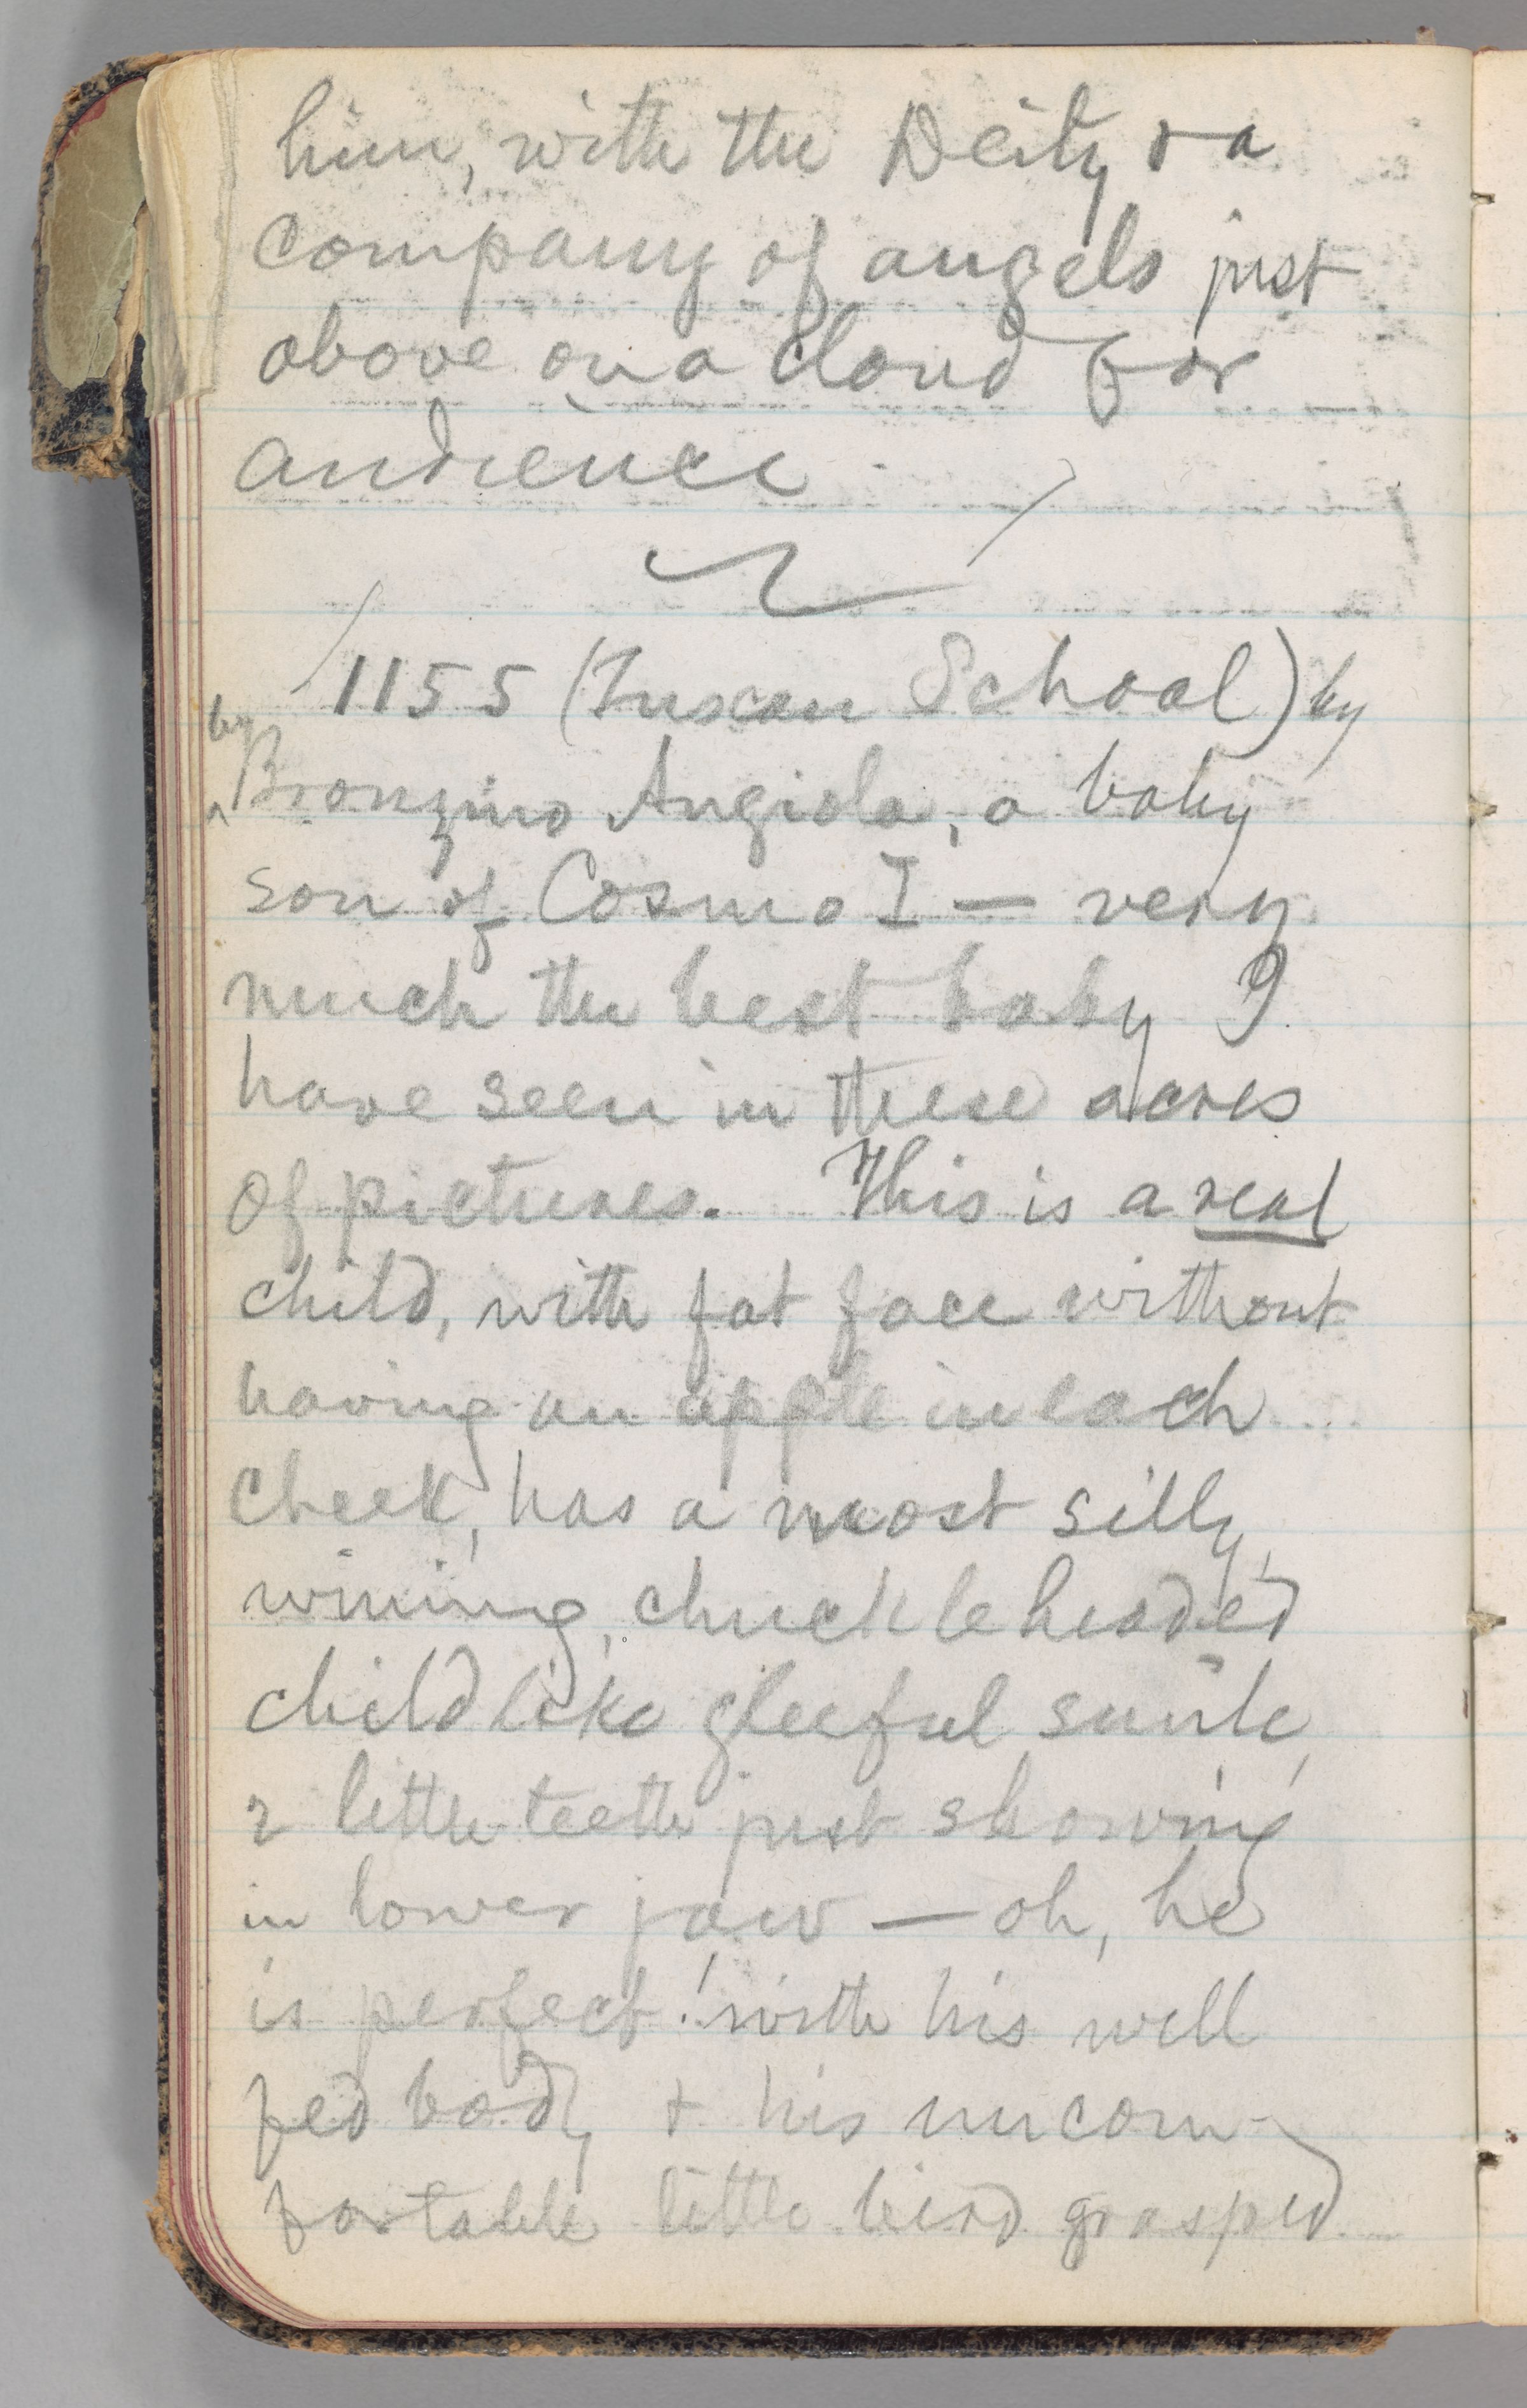 him, with the Deity & a
company of angels just
above on a cloud for
audience.
1155 (Tuscan School) by
by Bronzino Angiolo, a baby
son of Cosmo I — very
much the best baby I
have seen in these acres
of pictures. This is a real
child, with fat face without
having an apple in each
cheek, has a most silly,
wining, chuckleheaded
childlike gleeful smile,
2 little teeth just showing
in lower jaw — oh, he
is perfect! with his well
fed body & his uncom-
fortable little bird grasped